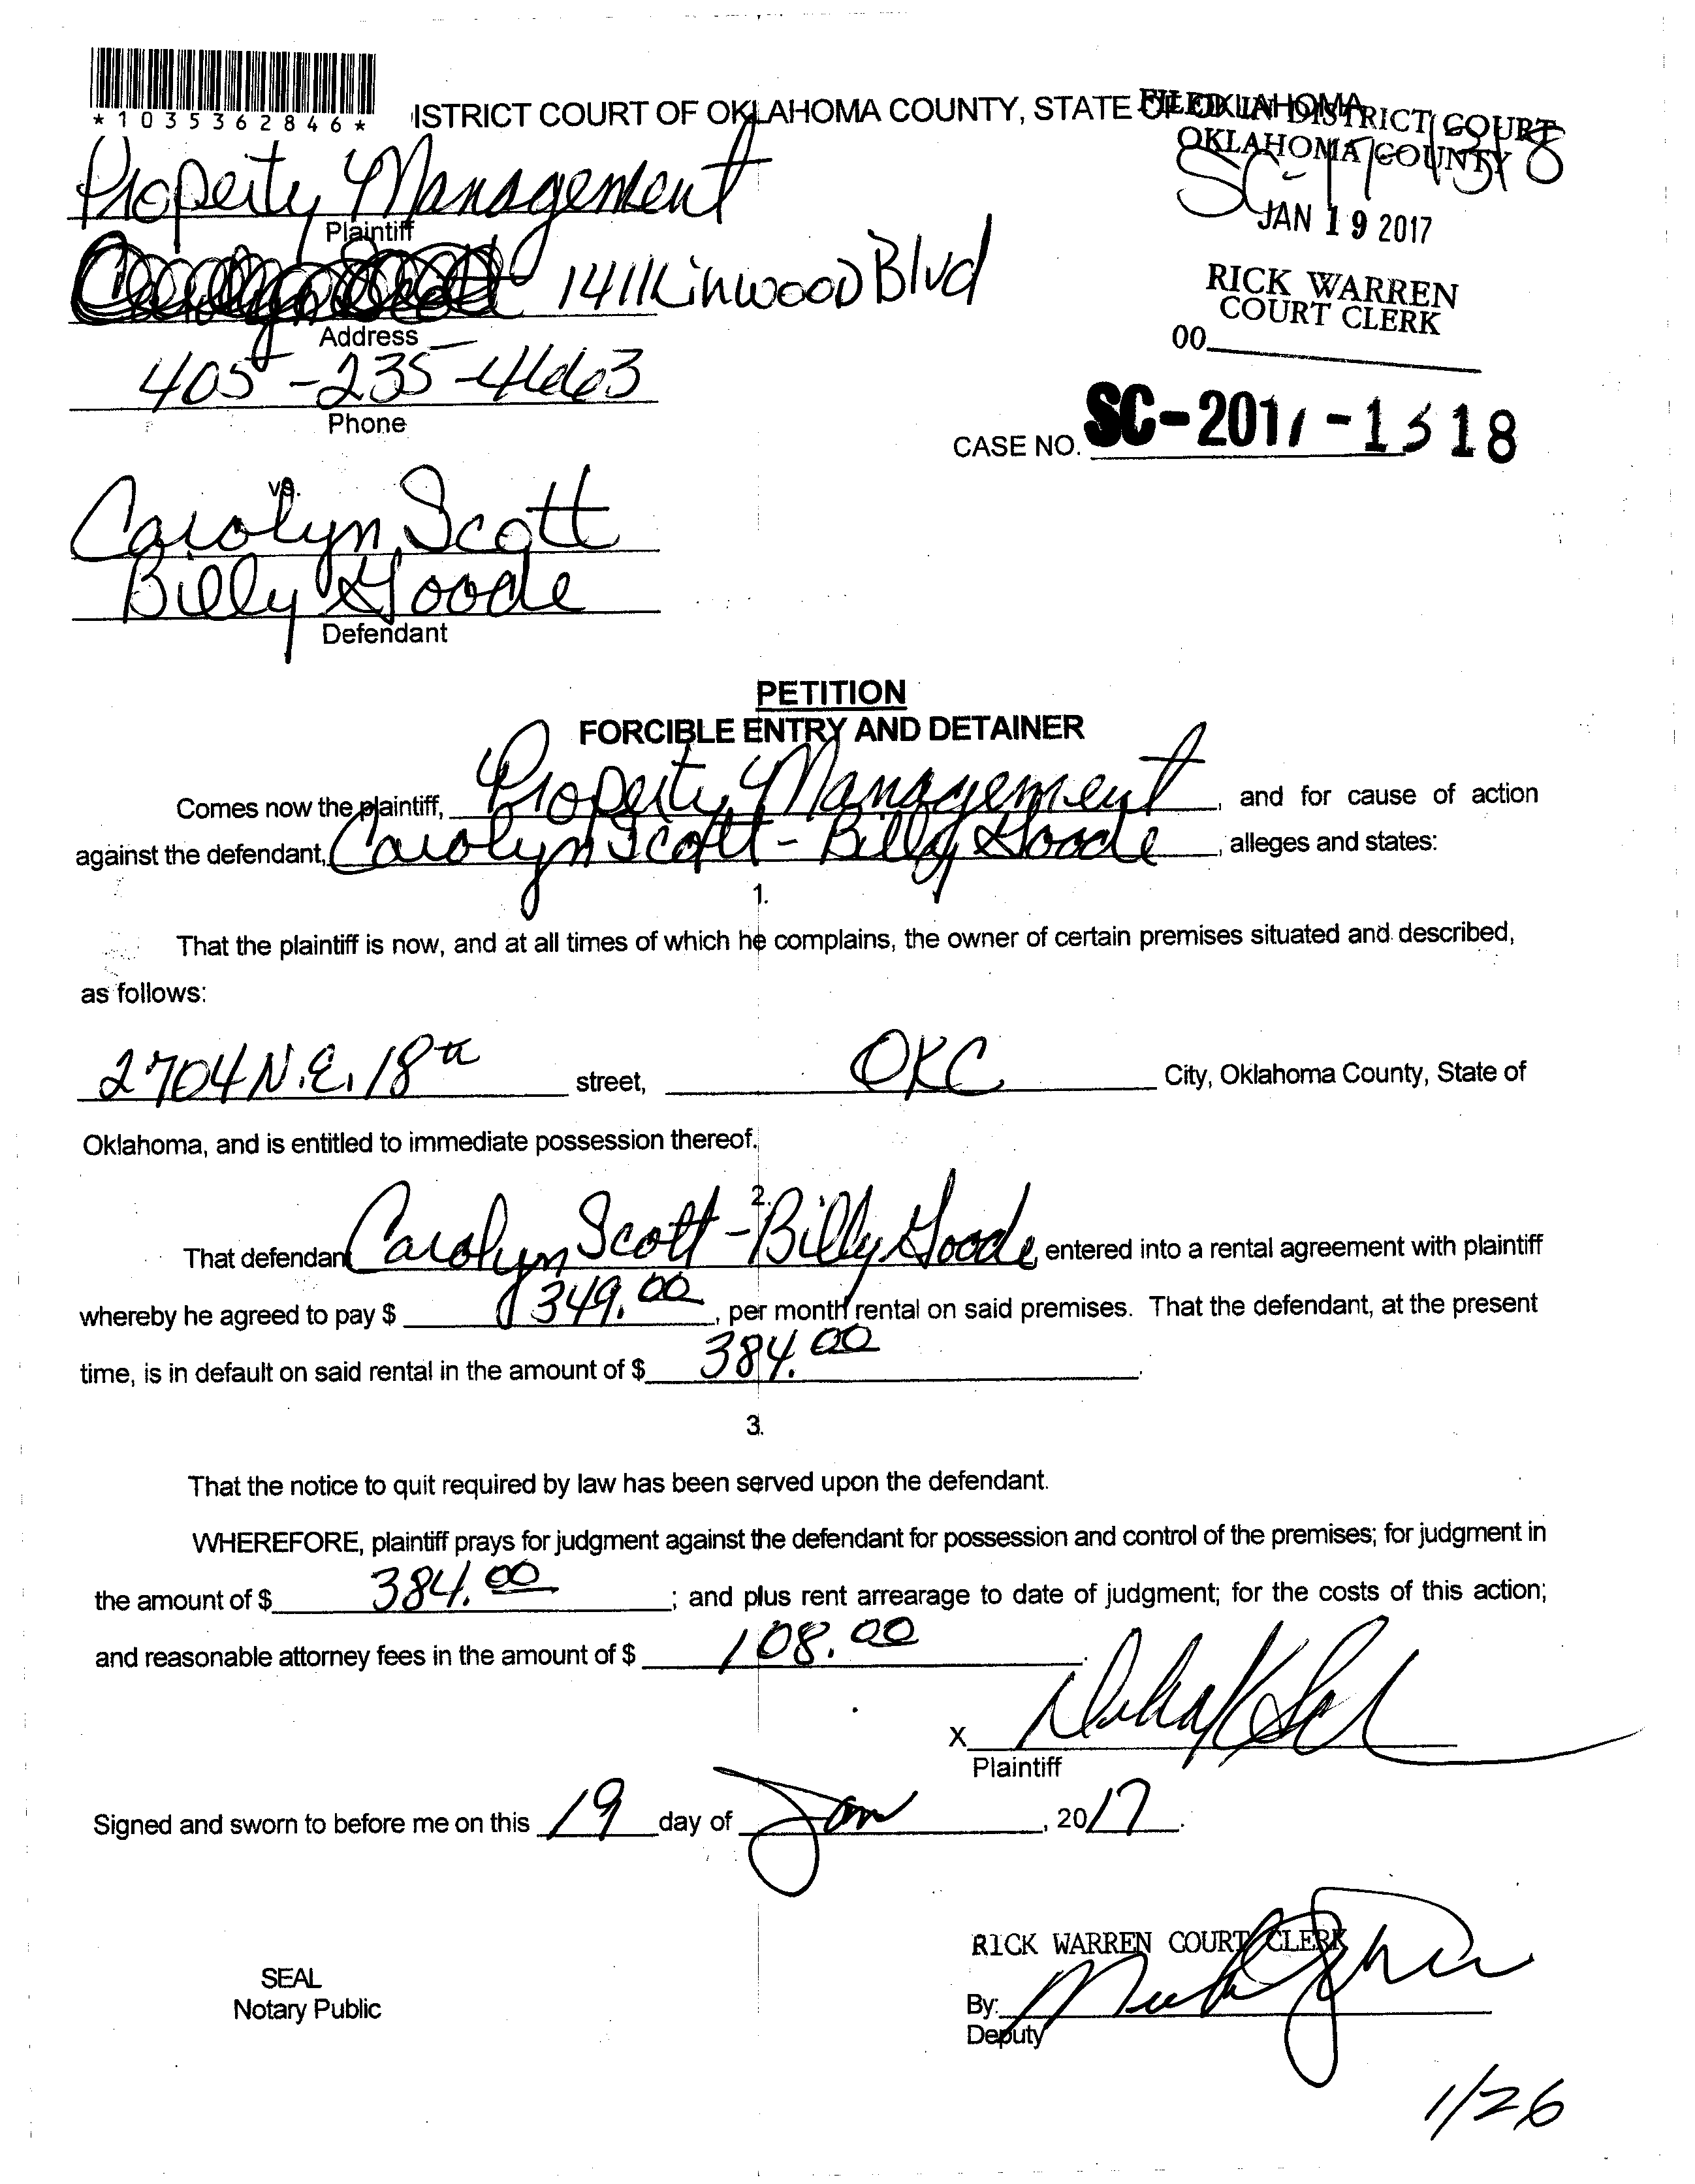 *1035362846*
ISTRICT COURT OF OKLAHOMA COUNTY, STATE OF OKLAHOMA
FILED IN DISTRICT COURT
OKLAHOMA COUNTY
SC-17-1318
Property Management
Plaintiff
JAN 19 2017
1411 Linwood Blvd
Address
RICK WARREN
COURT CLERK
00
405-235-4663
Phone
CASE NO. SC-2017-1318
vs.
Carolyn Scott
Billy Goode
Defendant
PETITION
FORCIBLE ENTRY AND DETAINER
Comes now the plaintiff, Property Management, and for cause of action
against the defendant, Carolyn Scott - Billy Goode, alleges and states:
1.
That the plaintiff is now, and at all times of which he complains, the owner of certain premises situated and described,
as follows:
2704 N.E. 18th street, OKC City, Oklahoma County, State of
Oklahoma, and is entitled to immediate possession thereof.
2.
That defendant Carolyn Scott - Billy Goode, entered into a rental agreement with plaintiff
whereby he agreed to pay $ 349.00, per month rental on said premises. That the defendant, at the present
time, is in default on said rental in the amount of $ 384.00.
3.
That the notice to quit required by law has been served upon the defendant.
WHEREFORE, plaintiff prays for judgment against the defendant for possession and control of the premises; for judgment in
the amount of $ 384.00; and plus rent arrearage to date of judgment; for the costs of this action;
and reasonable attorney fees in the amount of $ 108.00.
X
Plaintiff
Signed and sworn to before me on this 19 day of Jan, 2017.
RICK WARREN COURT CLERK
SEAL
Notary Public
By:
Deputy
1/26